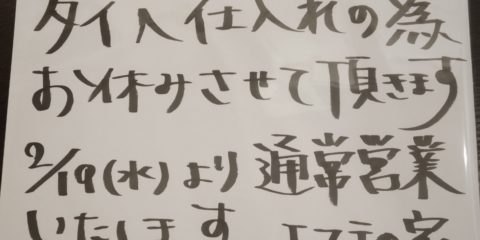 タイへ仕入れの為
お休みさせて頂きます
2/19(水)より通常営業
いたします